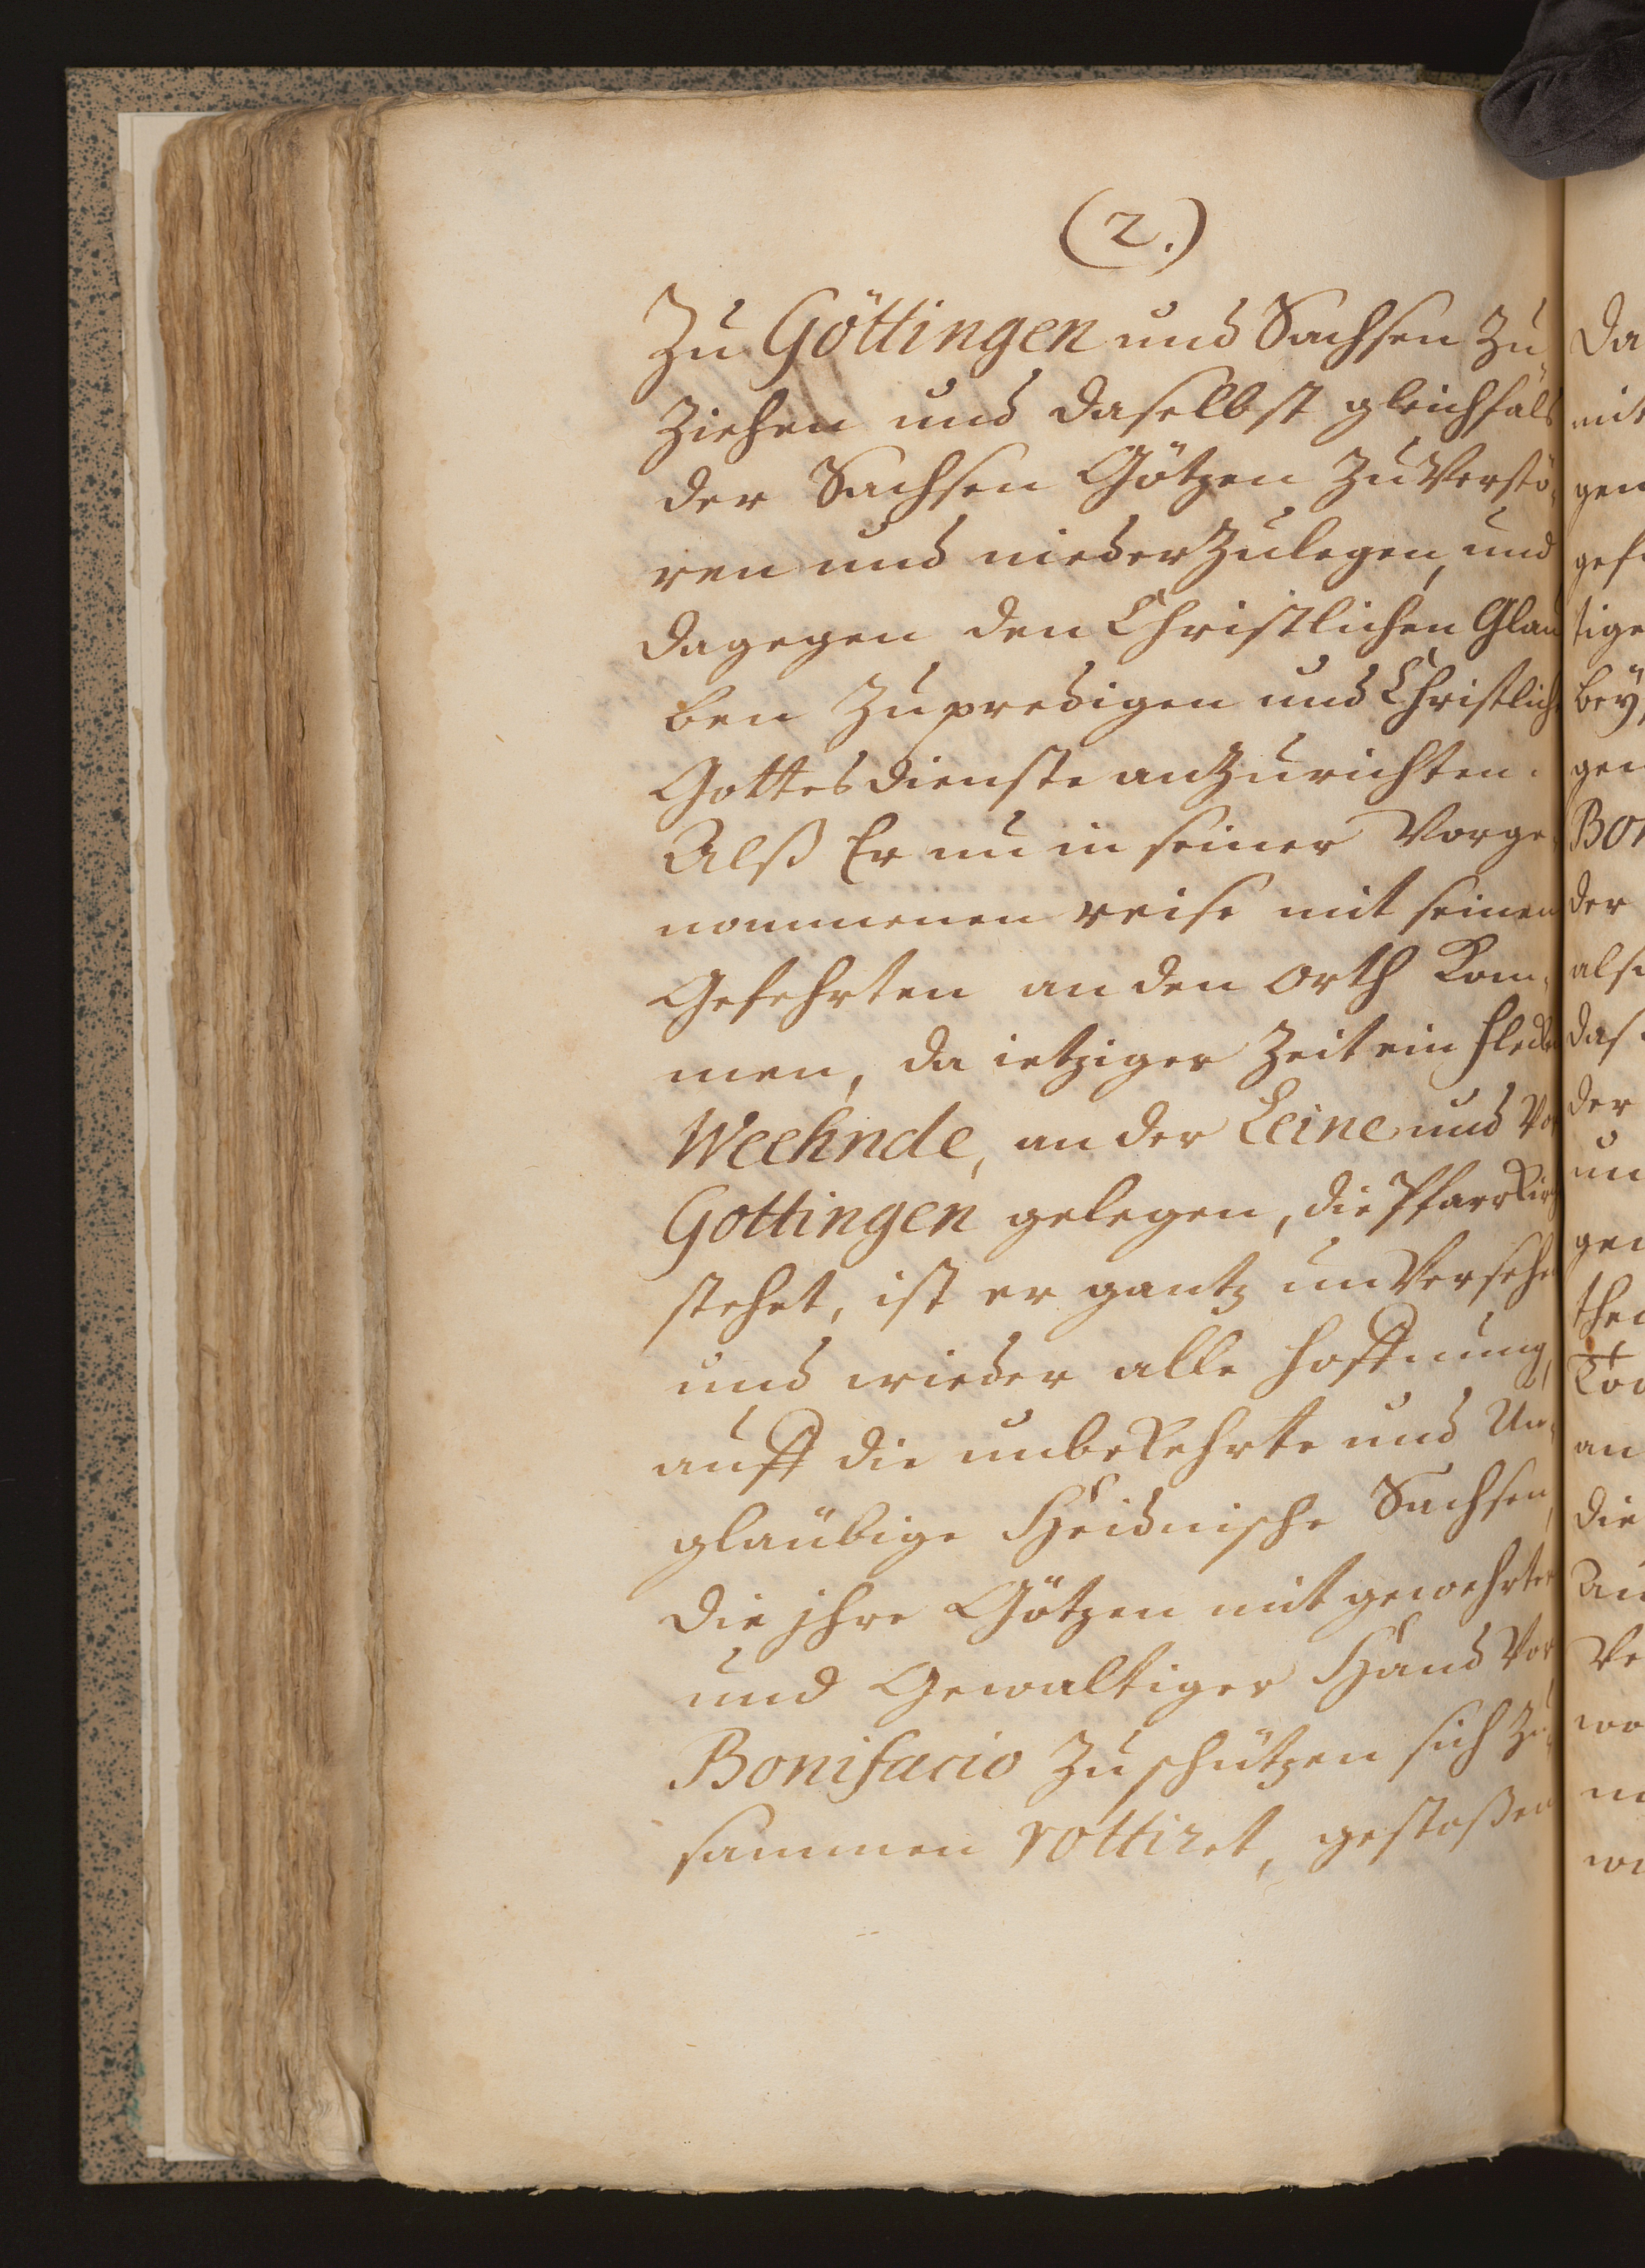 (2.)
Zu Göttingen und Sachsen Zu
Ziehen und daselbst gleichfals
der Sachsen Götzen Zu Verstö-
ren und nieder Zulegen, und
dagegen den Christlichen Glau
ben Zu predigen und Christlich
Gottesdienste anZurichten.
Alß Er nu in seiner Vorge-
nommenen reise mit seinen
Gefehrten an den Orth Kom-
men, da ietziger Zeit ein fleck
Weehnde, an der Leine und Vor
Gottingen gelegen, die Pfarrkirch
stehet, ist er gantz unVersehen
und wieder alle hoffnung,
auff die unbekehrte und Un-
gläubige Heidnische Sachsen,
die jhre Götzen mit gewehrter
und Gewaltiger Hand Vor
Bonifacio Zu schützen sich Zu-
sammen rottiret, gestoßen
da
mit
gen
gef
tige
bey,
gen
Bon
der
als
das
der
un
gen
thei
an
die
Au
Ve
wo